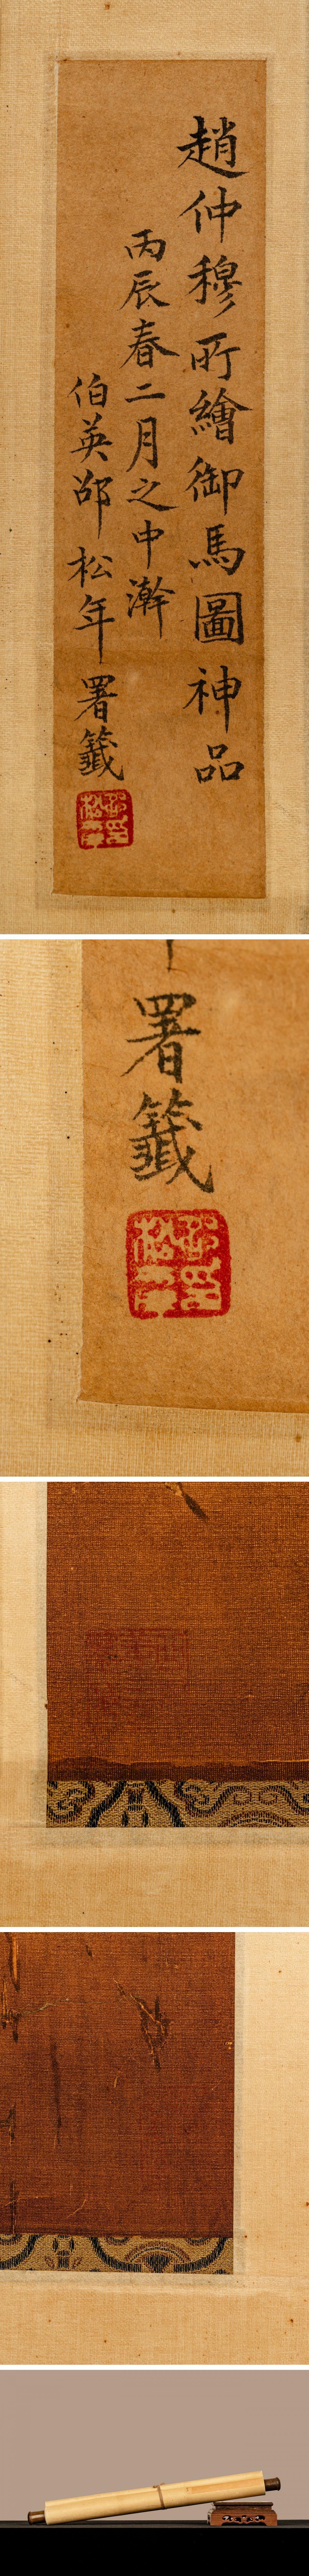 趙仲穆所繪御馬圖神品
丙辰春二月之中澣
伯英邵松年署籤
邵松年印
署籤